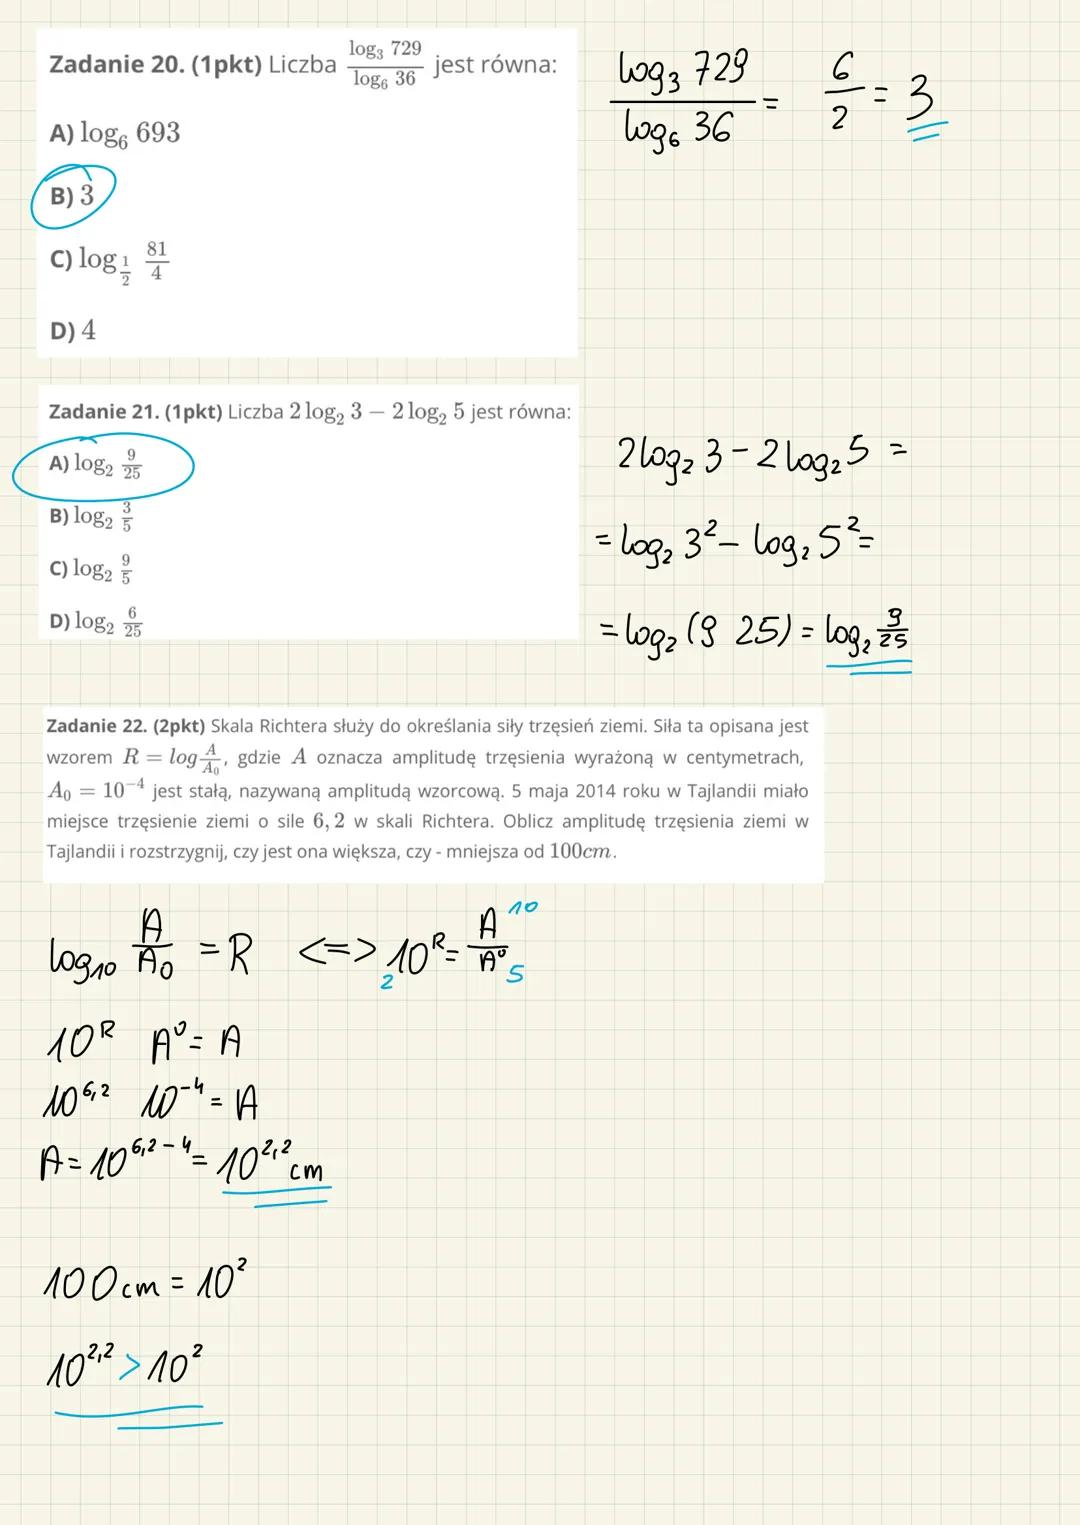 Zadanie 20. (1pkt) Liczba log₃ 729 / log₆ 36 jest równa:
A) log₆ 693
B) 3
C) log_{1/2} 81/4
D) 4
log₃ 729 / log₆ 36 = 6/2 = 3
Zadanie 21. (1pkt) Liczba 2 log₂ 3 − 2 log₂ 5 jest równa:
A) log₂ 9/25
B) log₂ 3/5
C) log₂ 9/5
D) log₂ 6/25
2log₂ 3 - 2 log₂ 5 =
= log₂ 3² - log₂ 5² =
= log₂ (9 25) = log₂ 9/25
Zadanie 22. (2pkt) Skala Richtera służy do określania siły trzęsień ziemi. Siła ta opisana jest
wzorem R = log A/A₀, gdzie A oznacza amplitudę trzęsienia wyrażoną w centymetrach,
A₀ = 10⁻⁴ jest stałą, nazywaną amplitudą wzorcową. 5 maja 2014 roku w Tajlandii miało
miejsce trzęsienie ziemi o sile 6, 2 w skali Richtera. Oblicz amplitudę trzęsienia ziemi w
Tajlandii i rozstrzygnij, czy jest ona większa, czy - mniejsza od 100cm.
log₁₀ A/A₀ = R <=> 10ᴿ = A/A⁰
10
2
5
10ᴿ A⁰ = A
10^{6,2} 10⁻⁴ = A
A = 10^{6,2-4} = 10^{2,2} cm
100cm = 10²
10^{2,2} > 10²